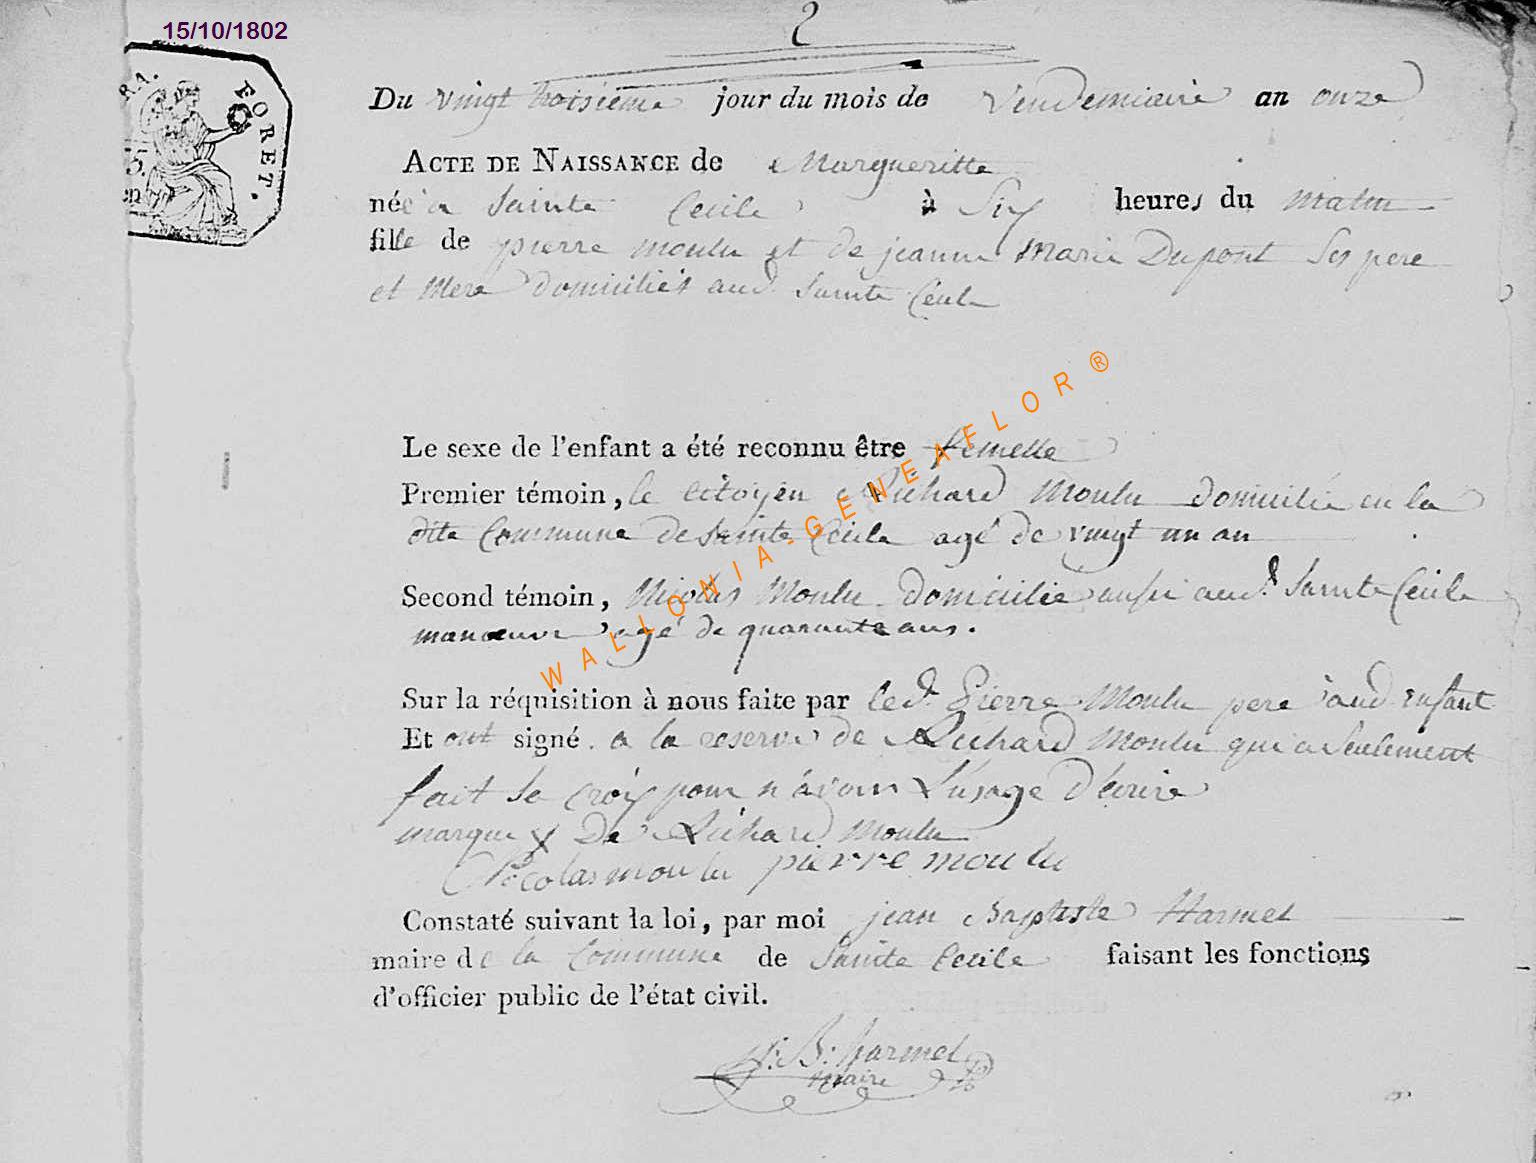 15/10/1802
2
RA.
FORET.
5.
en
Du vingt troisieme jour du mois de Vendemiaire an onze
ACTE DE NAISSANCE de Margueritte
née a Sainte Cecile à Six heures du Matin
fille de pierre moulu et de jeanne Marie Dupont Ses pere
et Mere domiciliés aud. Sainte Cecile
Le sexe de l'enfant a été reconnu être femelle
Premier témoin, le citoyen Richard Moulu domicilié en la
dite Commune de Sainte Cecile agé de vingt un an
Second témoin, Nicolas Moulu domicilié aussi aud. Sainte Cecile
manœuvre agé de quarante ans.
WALLONIA-GENEAFLOR®
Sur la réquisition à nous faite par led. Pierre Moulu pere aud enfant
Et ont signé. a la reserve de Richard Moulu qui a Seulement
fait Sa Croix pour n'avoir L'usage D'écrire
marque X De Richard Moulu
Nicolas moulu pierre moulu
Constaté suivant la loi, par moi jean Baptiste Harmel
maire de la Commune de Sainte Cecile faisant les fonctions
d'officier public de l'état civil.
J. B. harmel
maire